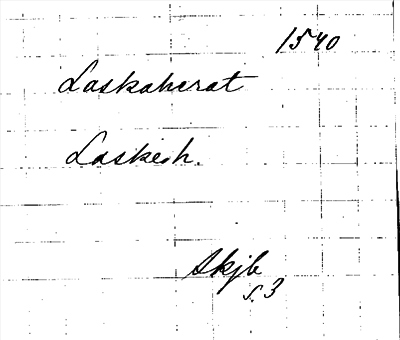 1540
Laskaherat
Laskeh.
Skjb
s. 3